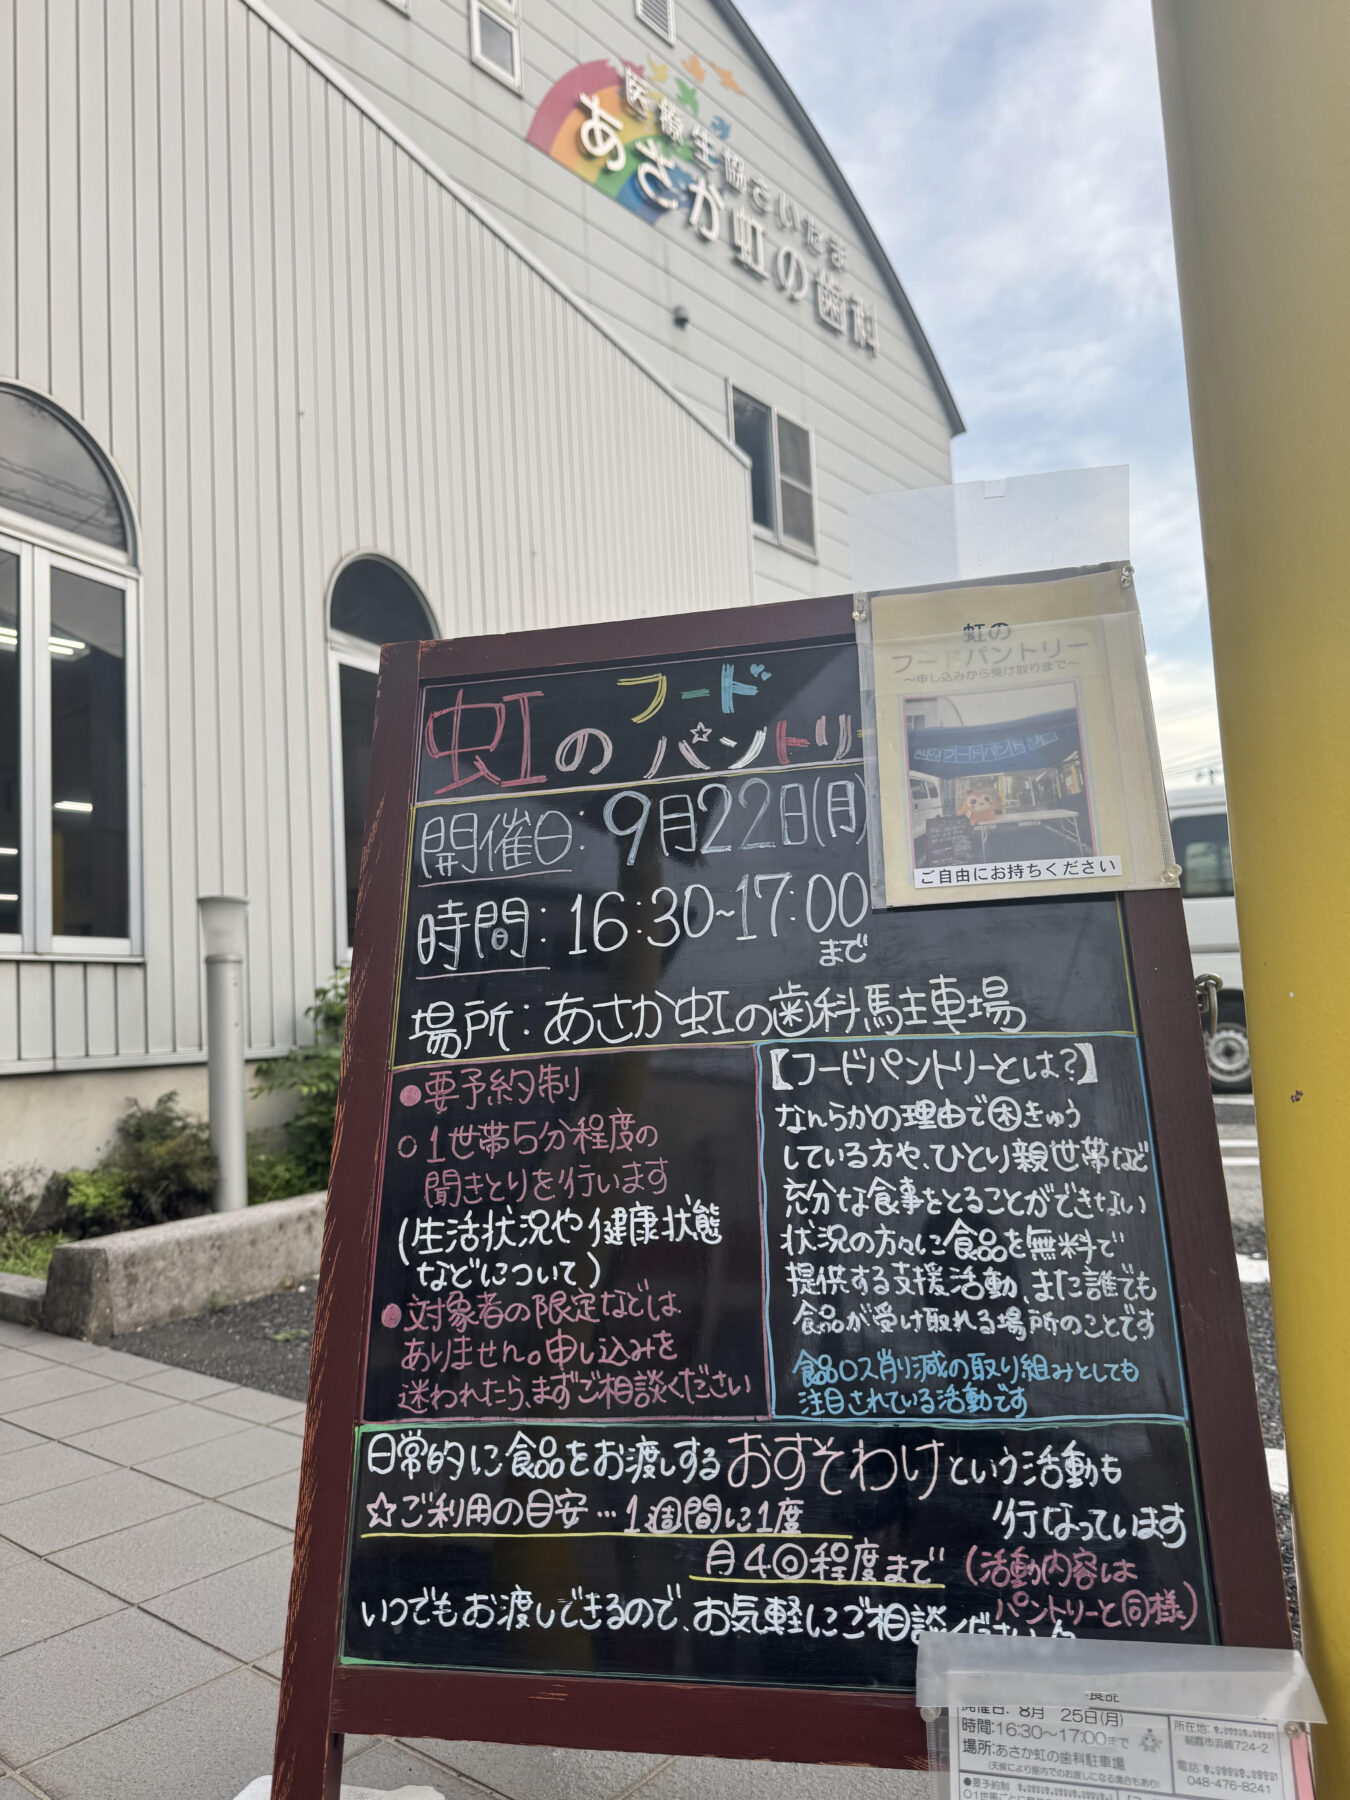 医療生協さいたま
あさか虹の歯科
虹の
フードパントリー
～申し込みから受け取りまで～
虹のフードパントリー
ご自由にお持ちください
虹の
フード
パントリー
開催日:9月22日(月)
時間:16:30~17:00
まで
場所:あさか虹の歯科駐車場
●要予約制
○1世帯5分程度の
聞きとりを行います
(生活状況や健康状態
などについて)
●対象者の限定などは
ありません。申し込みを
迷われたら、まずご相談ください
【フードパントリーとは?】
なんらかの理由で困きゅう
している方や、ひとり親世帯など
充分な食事をとることができない
状況の方々に食品を無料で
提供する支援活動、また誰でも
食品が受け取れる場所のことです
食品ロス削減の取り組みとしても
注目されている活動です
日常的に食品をお渡しするおすそわけという活動も
行なっています
☆ご利用の目安…1週間に1度
月4回程度まで
(活動内容は
パントリーと同様)
いつでもお渡しできるので、お気軽にご相談ください
開催日: 8月 25日(月)
時間:16:30～17:00まで
場所:あさか虹の歯科駐車場
(天候により屋内でのお渡しになる場合もあり)
●要予約制
所在地:
朝霞市浜崎724-2
電話:
048-476-8241